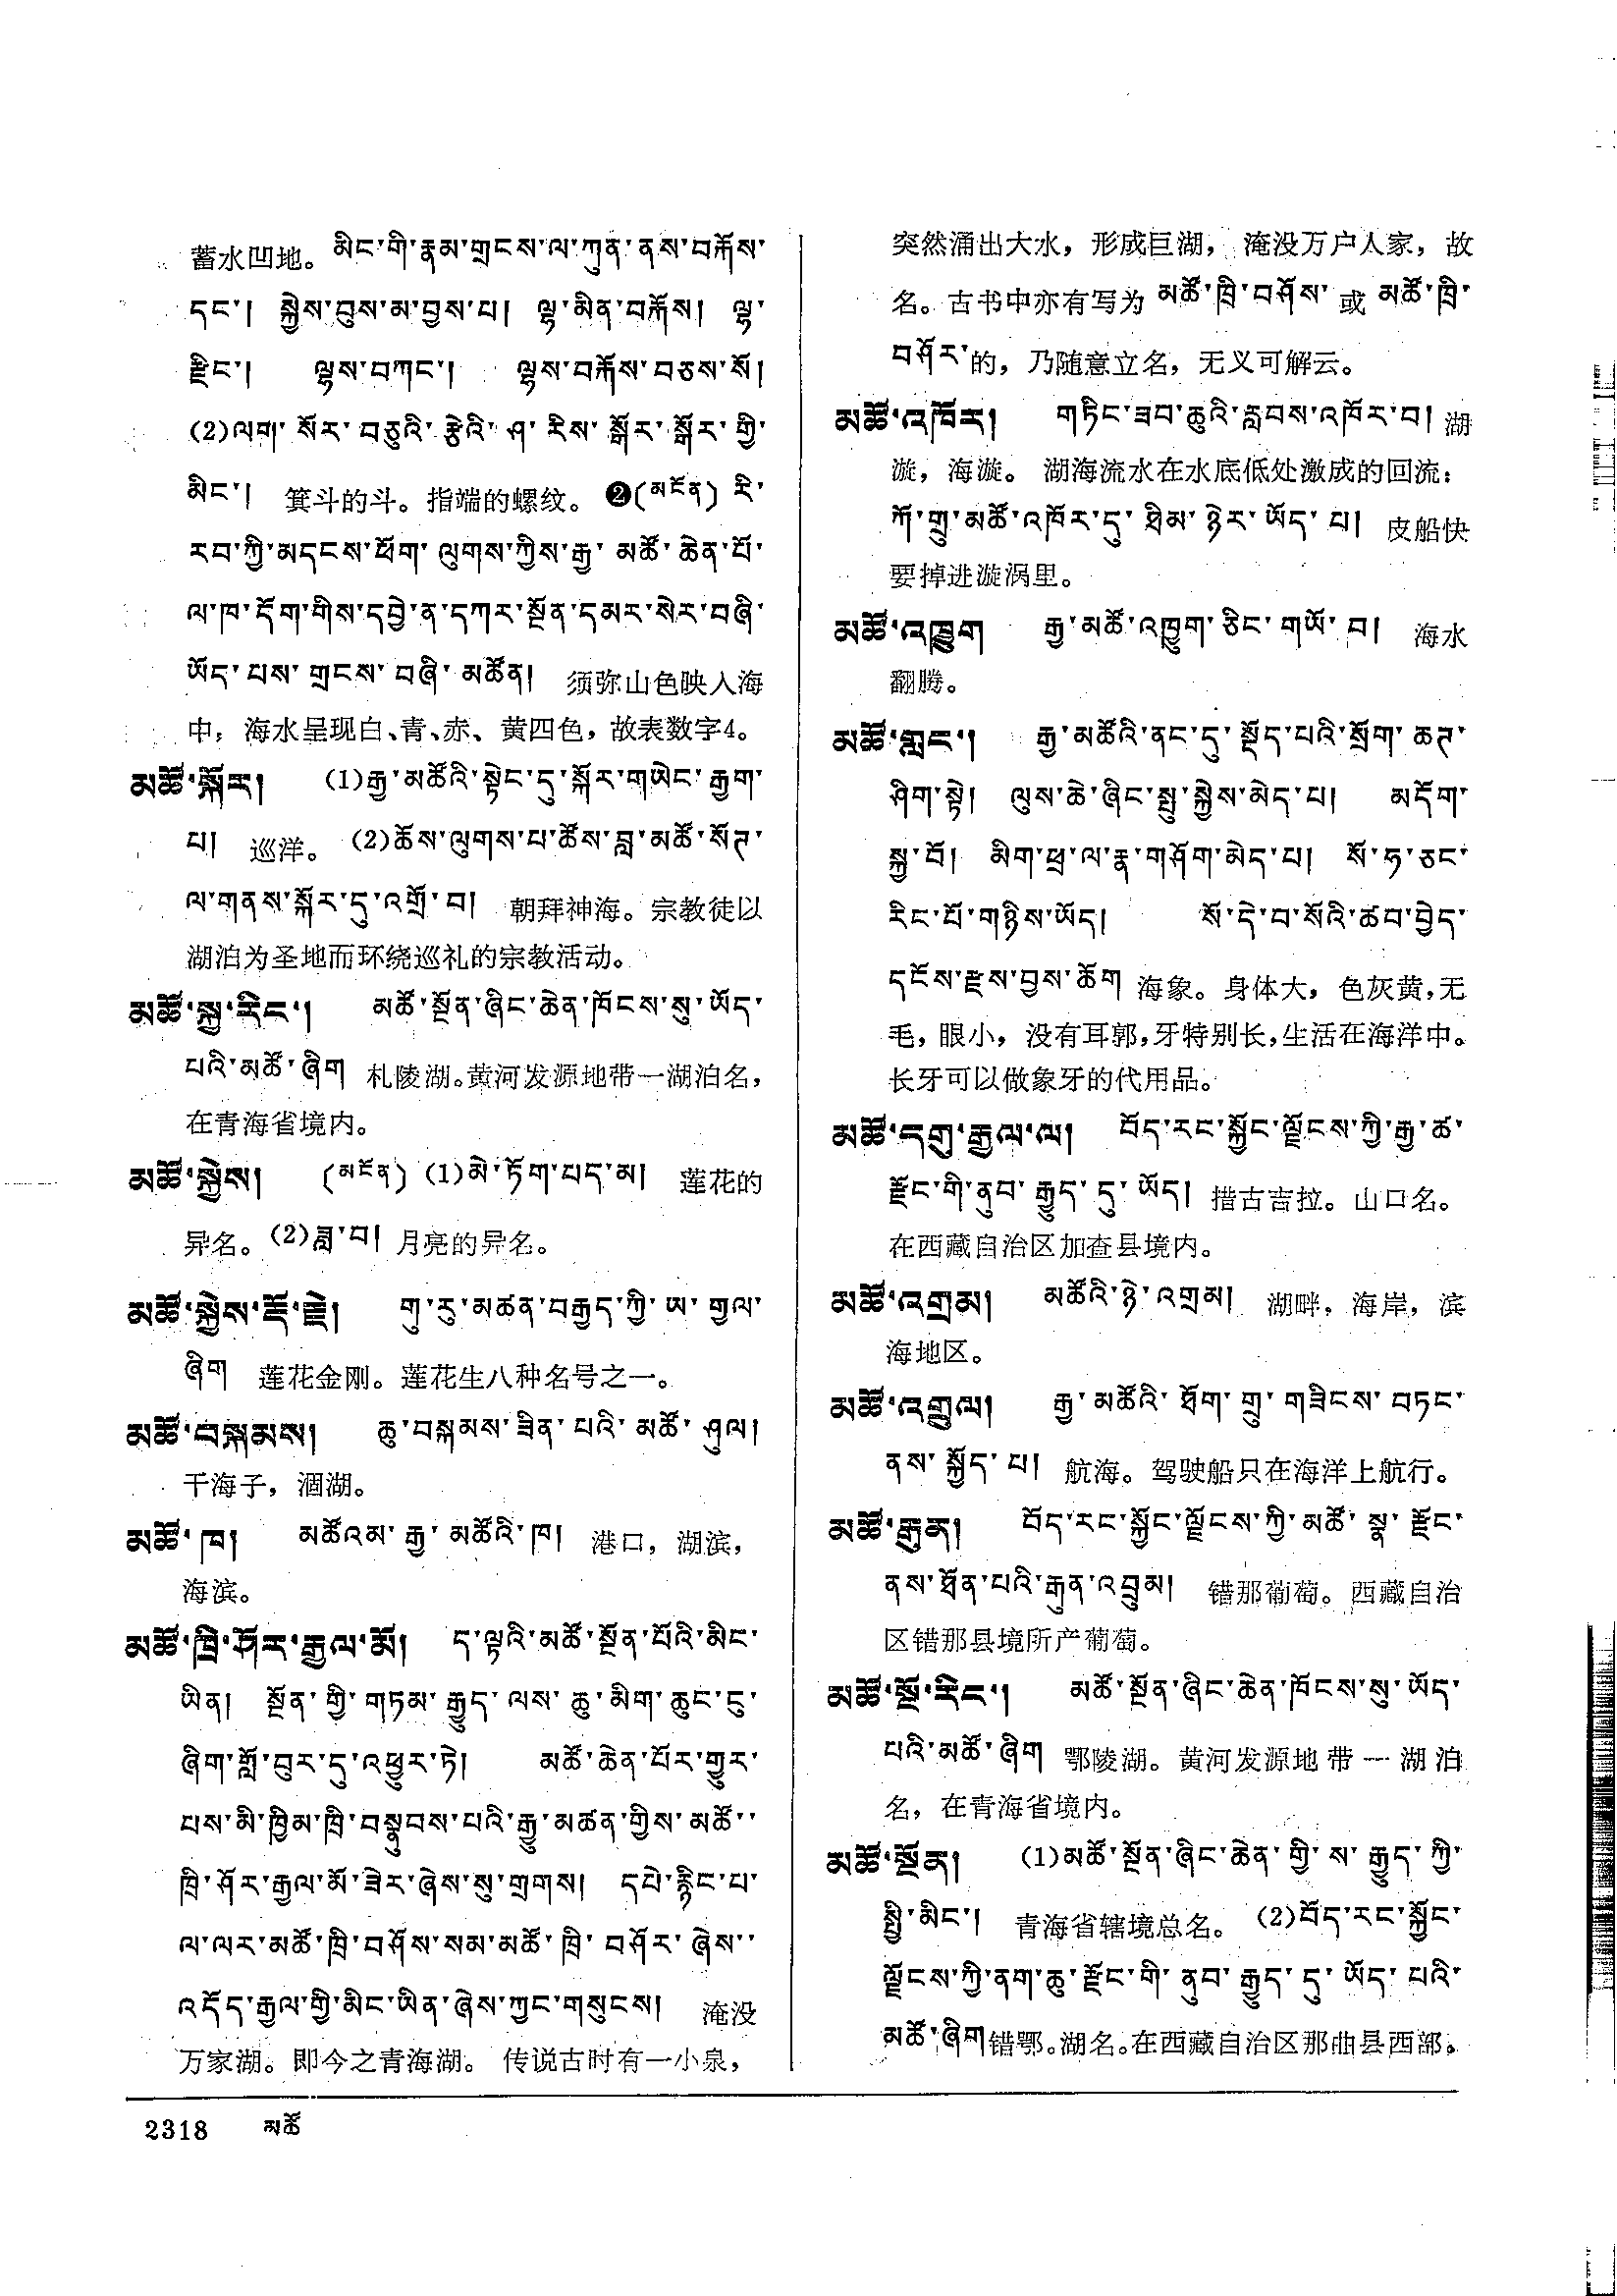 蓄水凹地。མིང་གི་རྣམ་གྲངས་ལ་ཀུན་ནས་བརྐོས་
དང་། སྐྱེས་བུས་མ་བྱས་པ། ལྷ་མིན་བརྐོས། ལྷ་
རྫིང་། ལྷས་བཀང་། ལྷས་བརྐོས་བཅས་སོ།
(2)ལག་སོར་བཅུའི་རྩེའི་ཤ་རིས་སྒོར་སྒོར་གྱི་
མིང་། 箕斗的斗。指端的螺纹。❷(མངོན) རི་
རབ་ཀྱི་མདངས་ཕོག་ལུགས་ཀྱིས་རྒྱ་མཚོ་ཆེན་པོ་
ལ་ཁ་དོག་གིས་དབྱེ་ན་དཀར་སྔོན་དམར་སེར་བཞི་
ཡོད་པས་གྲངས་བཞི་མཚོན། 须弥山色映入海
中，海水呈现白、青、赤、黄四色，故表数字4。
མཚོ་སྐོར། (1)རྒྱ་མཚོའི་སྟེང་དུ་སྐོར་གཡེང་རྒྱག་
པ། 巡洋。(2)ཆོས་ལུགས་པ་ཚོས་བླ་མཚོ་སོཊ་
ལ་གནས་སྐོར་དུ་འགྲོ་བ། 朝拜神海。宗教徒以
湖泊为圣地而环绕巡礼的宗教活动。
མཚོ་སྐྱ་རིང་། མཚོ་སྔོན་ཞིང་ཆེན་ཁོངས་སུ་ཡོད་
པའི་མཚོ་ཞིག 札陵湖。黄河发源地带一湖泊名，
在青海省境内。
མཚོ་སྐྱེས། (མངོན) (1)མེ་ཏོག་པད་མ། 莲花的
异名。(2)ཟླ་བ། 月亮的异名。
མཚོ་སྐྱེས་རྡོ་རྗེ། གུ་རུ་མཚན་བརྒྱད་ཀྱི་ཨ་གྱལ་
ཞིག 莲花金刚。莲花生八种名号之一。
མཚོ་བསྐམས། ཆུ་བསྐམས་ཟིན་པའི་མཚོ་ཤུལ།
干海子，涸湖。
མཚོ་ཁ། མཚོའམ་རྒྱ་མཚོའི་ཁ། 港口，湖滨，
海滨。
མཚོ་ཁྲི་ཤོར་རྒྱལ་མོ། ད་ལྟའི་མཚོ་སྔོན་པོའི་མིང་
ཡིན། སྔོན་གྱི་གཏམ་རྒྱུད་ལས་ཆུ་མིག་ཆུང་ངུ་
ཞིག་གློ་བུར་དུ་འཕྱུར་ཏེ། མཚོ་ཆེན་པོར་གྱུར་
པས་མི་ཁྱིམ་ཁྲི་བསྣུབས་པའི་རྒྱུ་མཚན་གྱིས་མཚོ་་
ཁྲི་ཤོར་རྒྱལ་མོ་ཟེར་ཞེས་སུ་གྲགས། དཔེ་རྙིང་པ་
ལ་ལར་མཚོ་ཁྲི་བཤོས་སམ་མཚོ་ཁྲི་བཤོར་ཞེས་་
འདོད་རྒྱལ་གྱི་མིང་ཡིན་ཞེས་ཀྱང་གསུངས། 淹没
万家湖。即今之青海湖。传说古时有一小泉，
突然涌出大水，形成巨湖，淹没万户人家，故
名。古书中亦有写为 མཚོ་ཁྲི་བཤོས་ 或 མཚོ་ཁྲི་
བཤོར་的，乃随意立名，无义可解云。
མཚོ་འཁོར། གཏིང་ཟབ་ཆུའི་རླབས་འཁོར་བ། 湖
漩，海漩。湖海流水在水底低处激成的回流：
ཀོ་གྲུ་མཚོ་འཁོར་དུ་ཐིམ་ཉེར་ཡོད་པ། 皮船快
要掉进漩涡里。
མཚོ་འཁྲུག རྒྱ་མཚོ་འཁྲུག་ཅིང་གཡོ་བ། 海水
翻腾。
མཚོ་གླང་། རྒྱ་མཚོའི་ནང་དུ་སྡོད་པའི་སྲོག་ཆཊ་
ཤིག་སྟེ། ལུས་ཆེ་ཞིང་སྤུ་སྐྱེས་མེད་པ། མདོག་
སྐྱ་བོ། མིག་ཕྲ་ལ་རྣ་གཤོག་མེད་པ། སོ་ཧ་ཅང་
རིང་པོ་གཉིས་ཡོད། སོ་དེ་བ་སོའི་ཚབ་བྱེད་
དངོས་རྫས་བྱས་ཆོག 海象。身体大，色灰黄，无
毛，眼小，没有耳郭，牙特别长，生活在海洋中。
长牙可以做象牙的代用品。
མཚོ་དགུ་རྒྱལ་ལ། བོད་རང་སྐྱོང་ལྗོངས་ཀྱི་རྒྱ་ཚ་
རྫོང་གི་ནུབ་རྒྱུད་དུ་ཡོད། 措古吉拉。山口名。
在西藏自治区加查县境内。
མཚོ་འགྲམ། མཚོའི་ཉེ་འགྲམ། 湖畔，海岸，滨
海地区。
མཚོ་འགྲུལ། རྒྱ་མཚོའི་ཐོག་གྲུ་གཟིངས་བཏང་
ནས་སྐྱོད་པ། 航海。驾驶船只在海洋上航行。
མཚོ་རྒུན། བོད་རང་སྐྱོང་ལྗོངས་ཀྱི་མཚོ་སྣ་རྫོང་
ནས་ཐོན་པའི་རྒུན་འབྲུམ། 错那葡萄。西藏自治
区错那县境所产葡萄。
མཚོ་སྔོ་རིང་། མཚོ་སྔོན་ཞིང་ཆེན་ཁོངས་སུ་ཡོད་
པའི་མཚོ་ཞིག 鄂陵湖。黄河发源地带一湖泊
名，在青海省境内。
མཚོ་སྔོན། (1)མཚོ་སྔོན་ཞིང་ཆེན་གྱི་ས་རྒྱུད་ཀྱི་
སྤྱི་མིང་། 青海省辖境总名。(2)བོད་རང་སྐྱོང་
ལྗོངས་ཀྱི་ནག་ཆུ་རྫོང་གི་ནུབ་རྒྱུད་དུ་ཡོད་པའི་
མཚོ་ཞིག错鄂。湖名。在西藏自治区那曲县西部。
2318 མཚོ